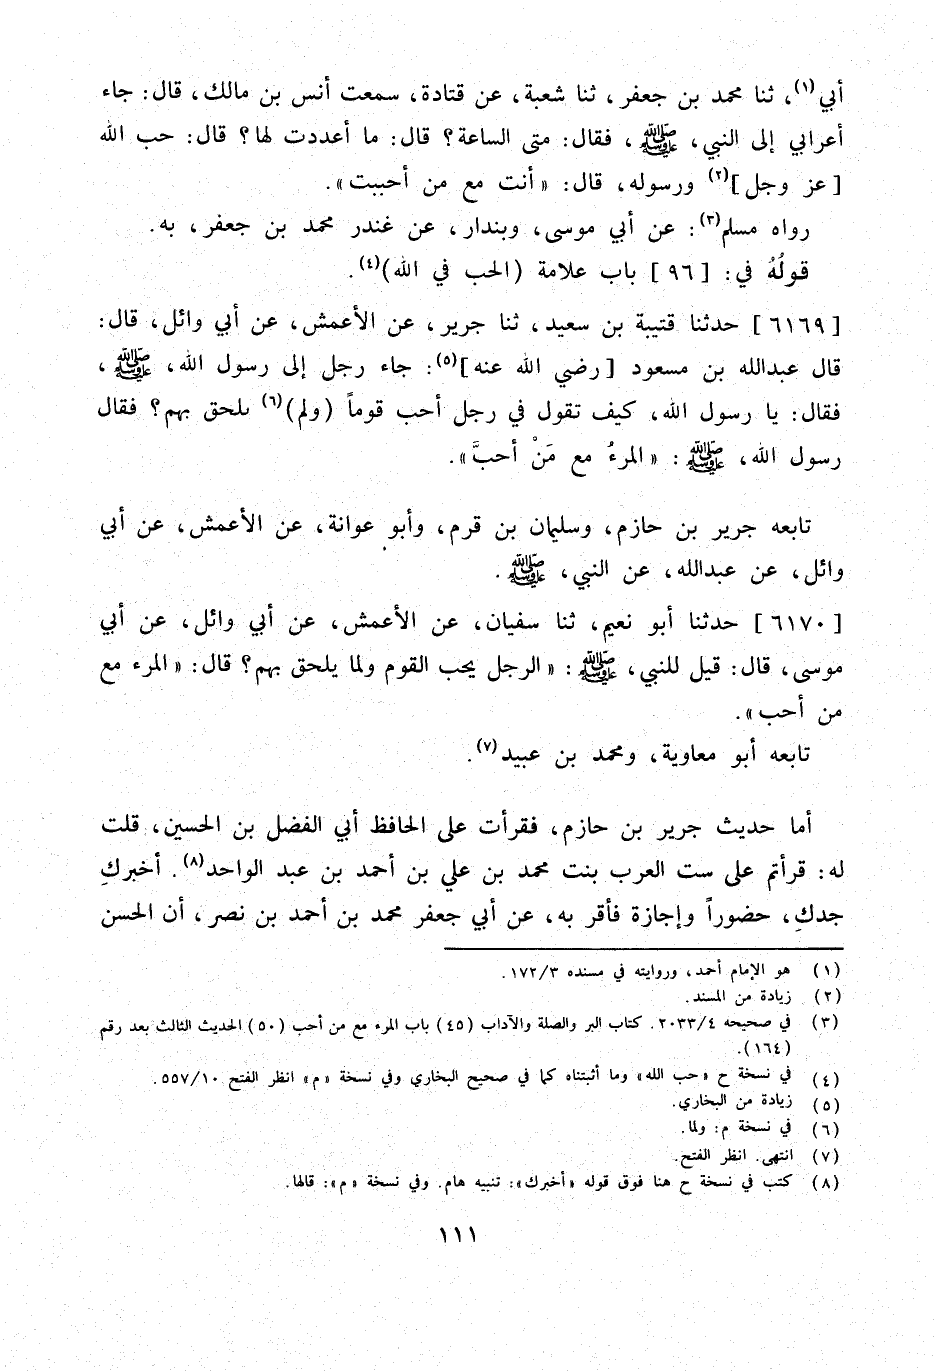 أبي(١)، ثنا محمد بن جعفر، ثنا شعبة، عن قتادة، سمعت أنس بن مالك، قال: جاء
أعرابي إلى النبي، ﷺ، فقال: متى الساعة؟ قال: ما أعددت لها؟ قال: حب الله
[عز وجل](٢) ورسوله، قال: «أنت مع من أحببت».
رواه مسلم(٣): عن أبي موسى، وبندار، عن غندر محمد بن جعفر، به.
قولُهُ في: [٩٦] باب علامة (الحب في الله)(٤).
[٦١٦٩] حدثنا قتيبة بن سعيد، ثنا جرير، عن الأعمش، عن أبي وائل، قال:
قال عبدالله بن مسعود [رضي الله عنه](٥): جاء رجل إلى رسول الله، ﷺ،
فقال: يا رسول الله، كيف تقول في رجل أحب قوماً (ولم)(٦) يلحق بهم؟ فقال
رسول الله، ﷺ: «المرءُ مع مَنْ أحبَّ».
تابعه جرير بن حازم، وسليمان بن قرم، وأبو عوانة، عن الأعمش، عن أبي
وائل، عن عبدالله، عن النبي، ﷺ.
[٦١٧٠] حدثنا أبو نعيم، ثنا سفيان، عن الأعمش، عن أبي وائل، عن أبي
موسى، قال: قيل للنبي، ﷺ: «الرجل يحب القوم ولما يلحق بهم؟ قال: «المرء مع
من أحب».
تابعه أبو معاوية، ومحمد بن عبيد(٧).
أما حديث جرير بن حازم، فقرأت على الحافظ أبي الفضل بن الحسين، قلت
له: قرأتم على ست العرب بنت محمد بن علي بن أحمد بن عبد الواحد(٨). أخبركِ
جدكِ، حضوراً وإجازة فأقر به، عن أبي جعفر محمد بن أحمد بن نصر، أن الحسن
(١) هو الإمام أحمد، وروايته في مسنده ١٧٢/٣.
(٢) زيادة من المسند.
(٣) في صحيحه ٢٠٣٣/٤. كتاب البر والصلة والآداب (٤٥) باب المرء مع من أحب (٥٠) الحديث الثالث بعد رقم
(١٦٤).
(٤) في نسخة ح «حب الله» وما أثبتناه كما في صحيح البخاري وفي نسخة «م» انظر الفتح ٥٥٧/١٠.
(٥) زيادة من البخاري.
(٦) في نسخة م: ولما.
(٧) انتهى. انظر الفتح.
(٨) كتب في نسخة ح هنا فوق قوله «أخبرك»: تنبيه هام. وفي نسخة «م»: قالها.
١١١